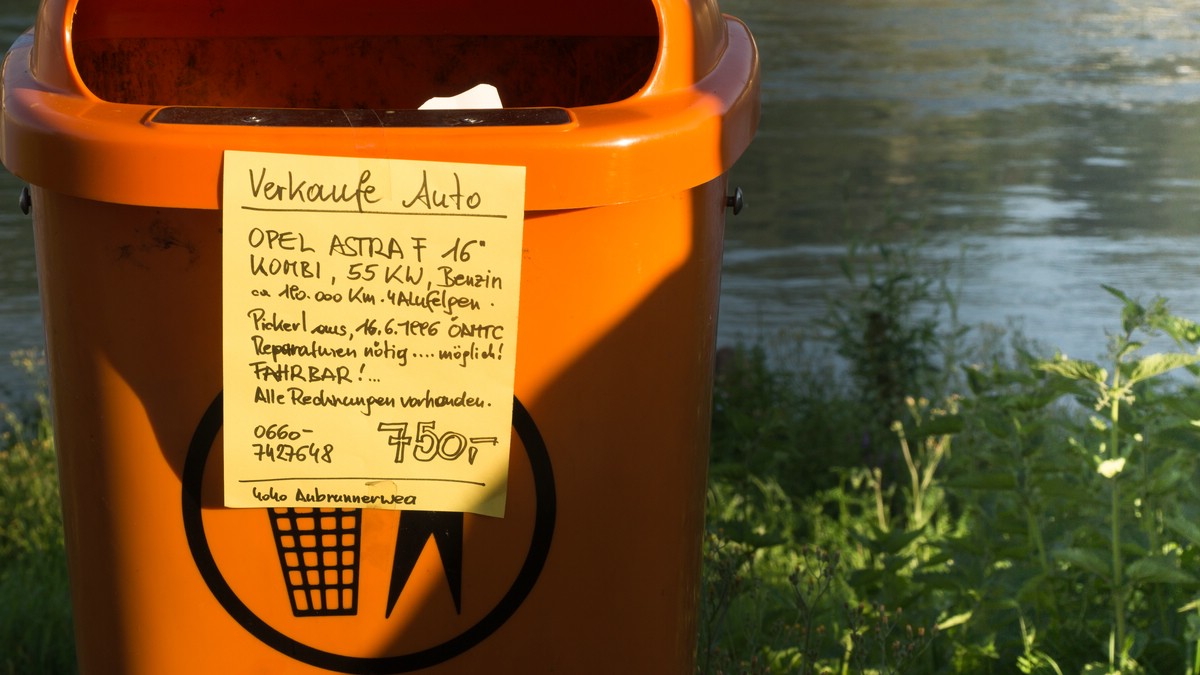 Verkaufe Auto
OPEL ASTRA F 16"
KOMBI, 55 KW, Benzin
ca 190.000 Km. 4 Alufelgen.
Pickerl aus, 16.6.1996 ÖAMTC
Reparaturen nötig .... möglich!
FAHRBAR!...
Alle Rechnungen vorhanden.
0660-
7427648
750,-
4040 Aubrunnerweg